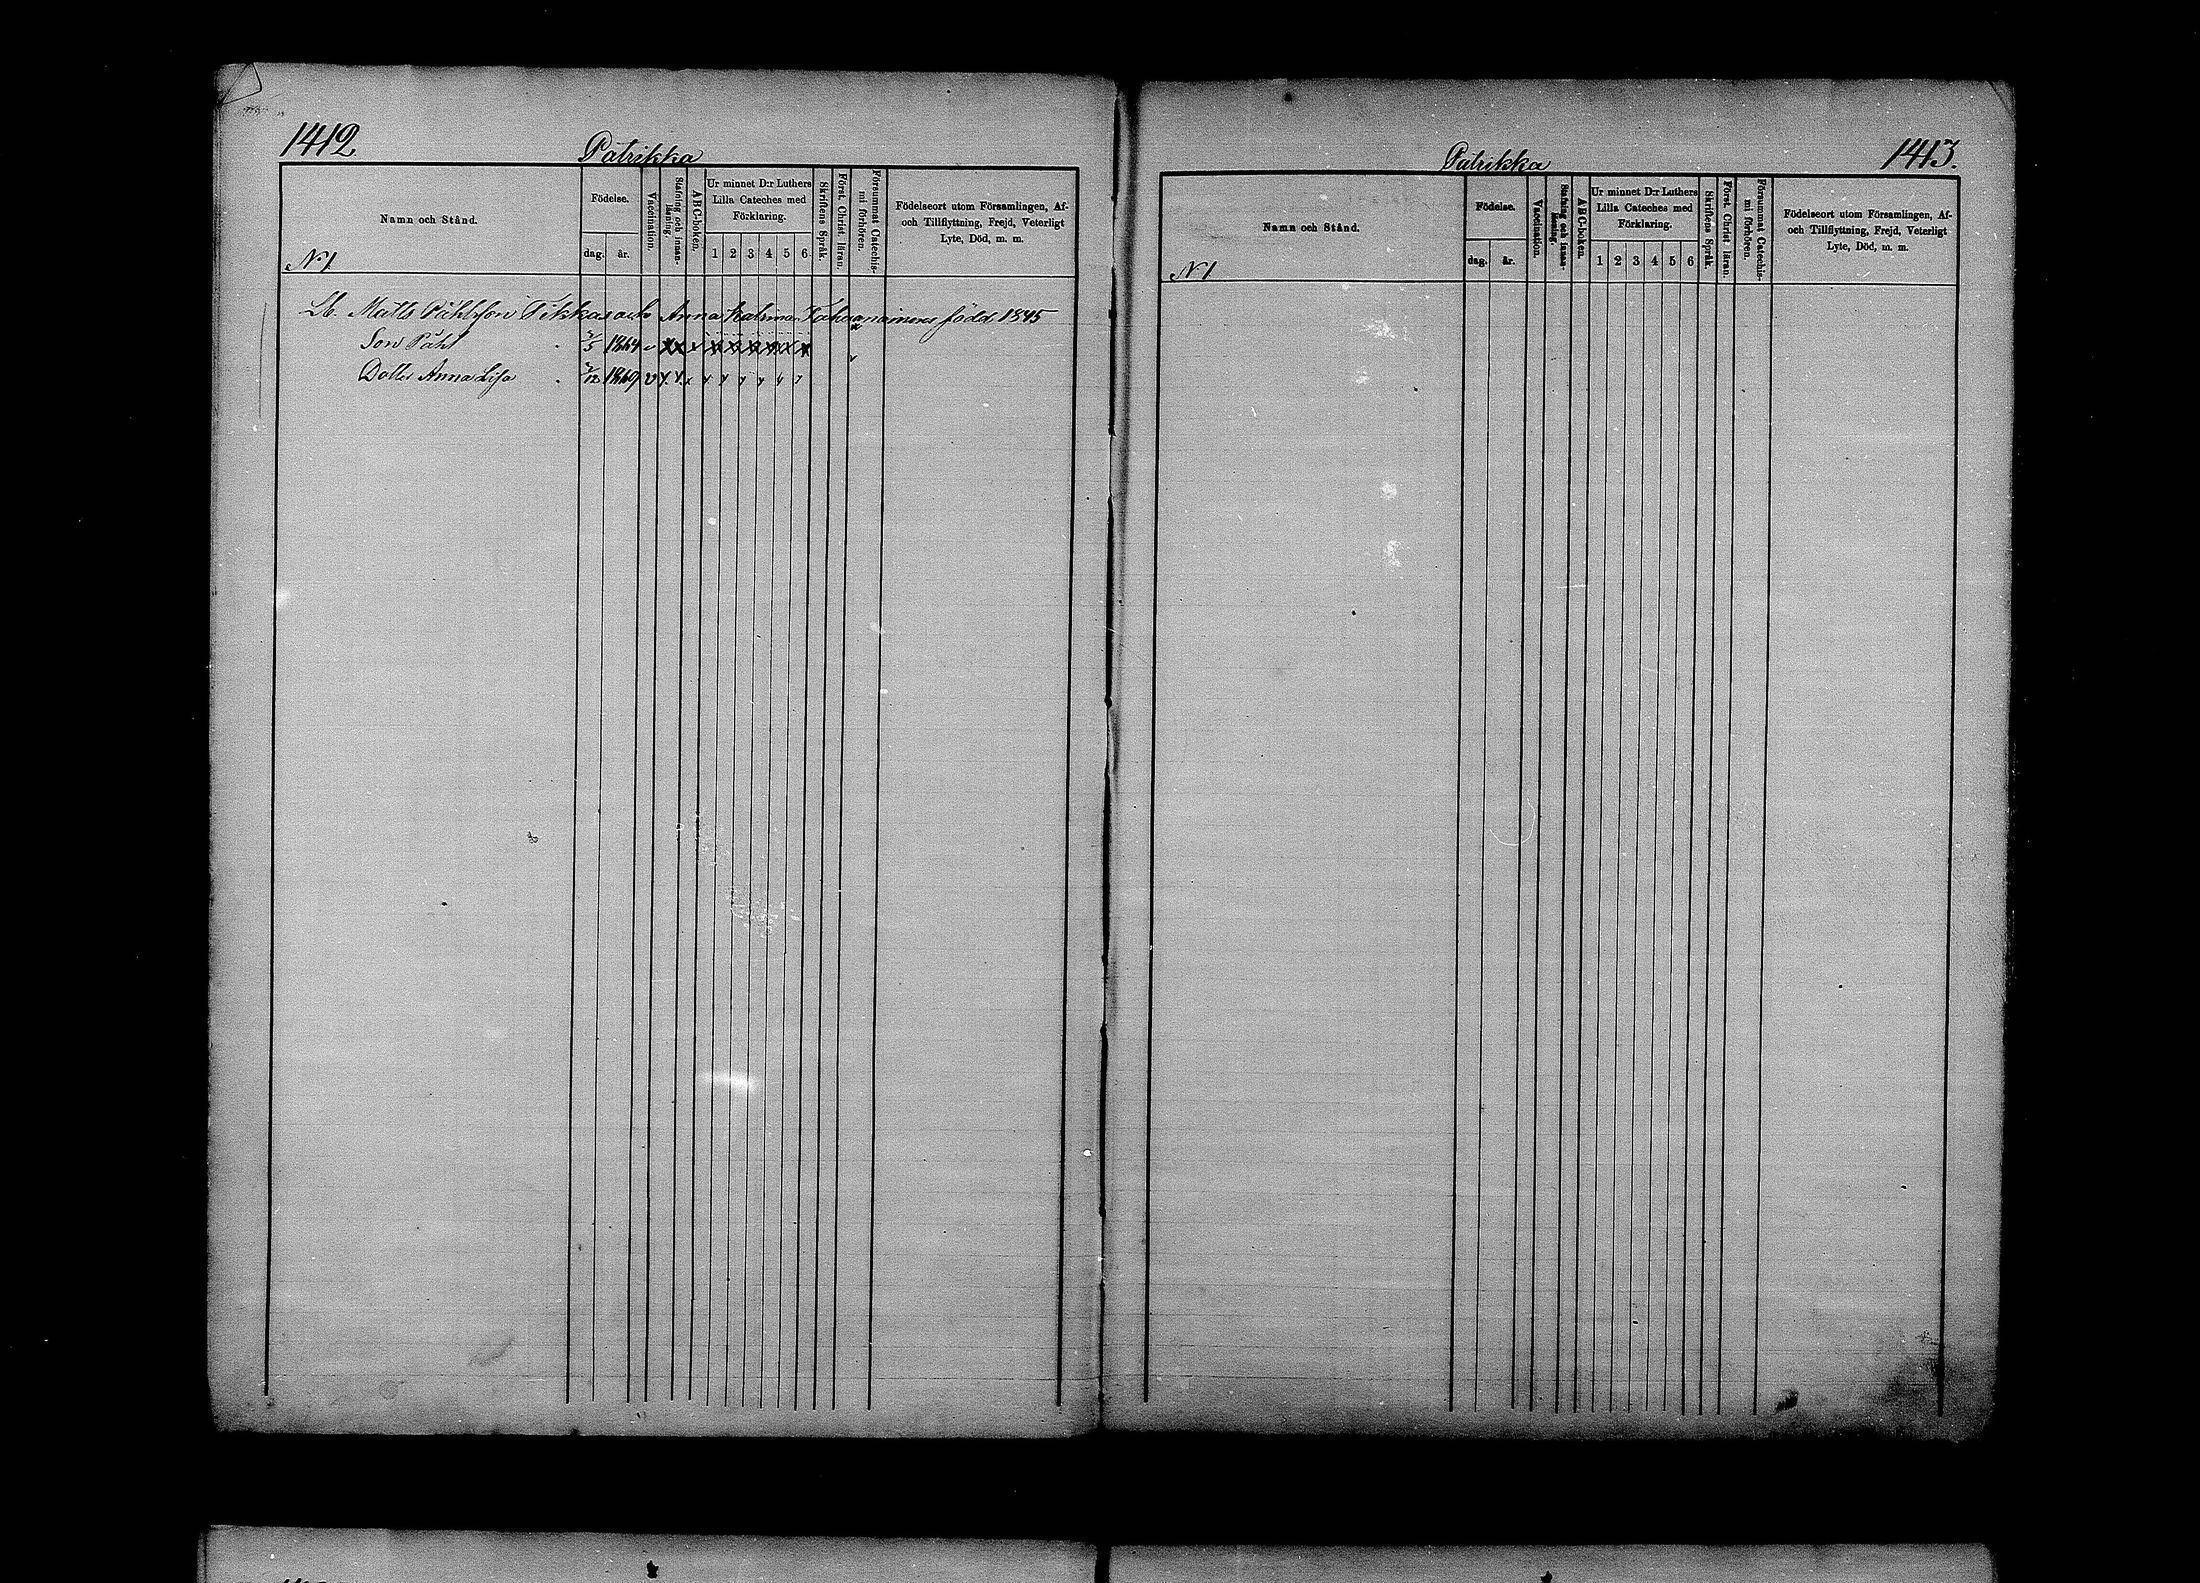 1412
Patrikka
Namn och Stånd.
N 1
Födelse.
dag.
år.
Vaccination.
Stafning och innan-
läsning.
ABC-boken.
Ur minnet D:r Luthers
Lilla Cateches med
Förklaring.
1 2 3 4 5 6
Skriftens Språk.
Först. Christ. läran.
Försummat Catechis-
mi förhören.
Födelseort utom Församlingen, Af-
och Tillflyttning, Frejd, Veterligt
Lyte, Död, m. m.
Matts Påhlsson Anna född 1845
Son Påhl 1864 v x x x x x x x x x
Dotter Anna Lisa 1869 v
Patrikka
1413.
Namn och Stånd.
N 1
Födelse.
dag.
år.
Vaccination.
Stafning och innan-
läsning.
ABC-boken.
Ur minnet D:r Luthers
Lilla Cateches med
Förklaring.
1 2 3 4 5 6
Skriftens Språk.
Först. Christ. läran.
Försummat Catechis-
mi förhören.
Födelseort utom Församlingen, Af-
och Tillflyttning, Frejd, Veterligt
Lyte, Död, m. m.